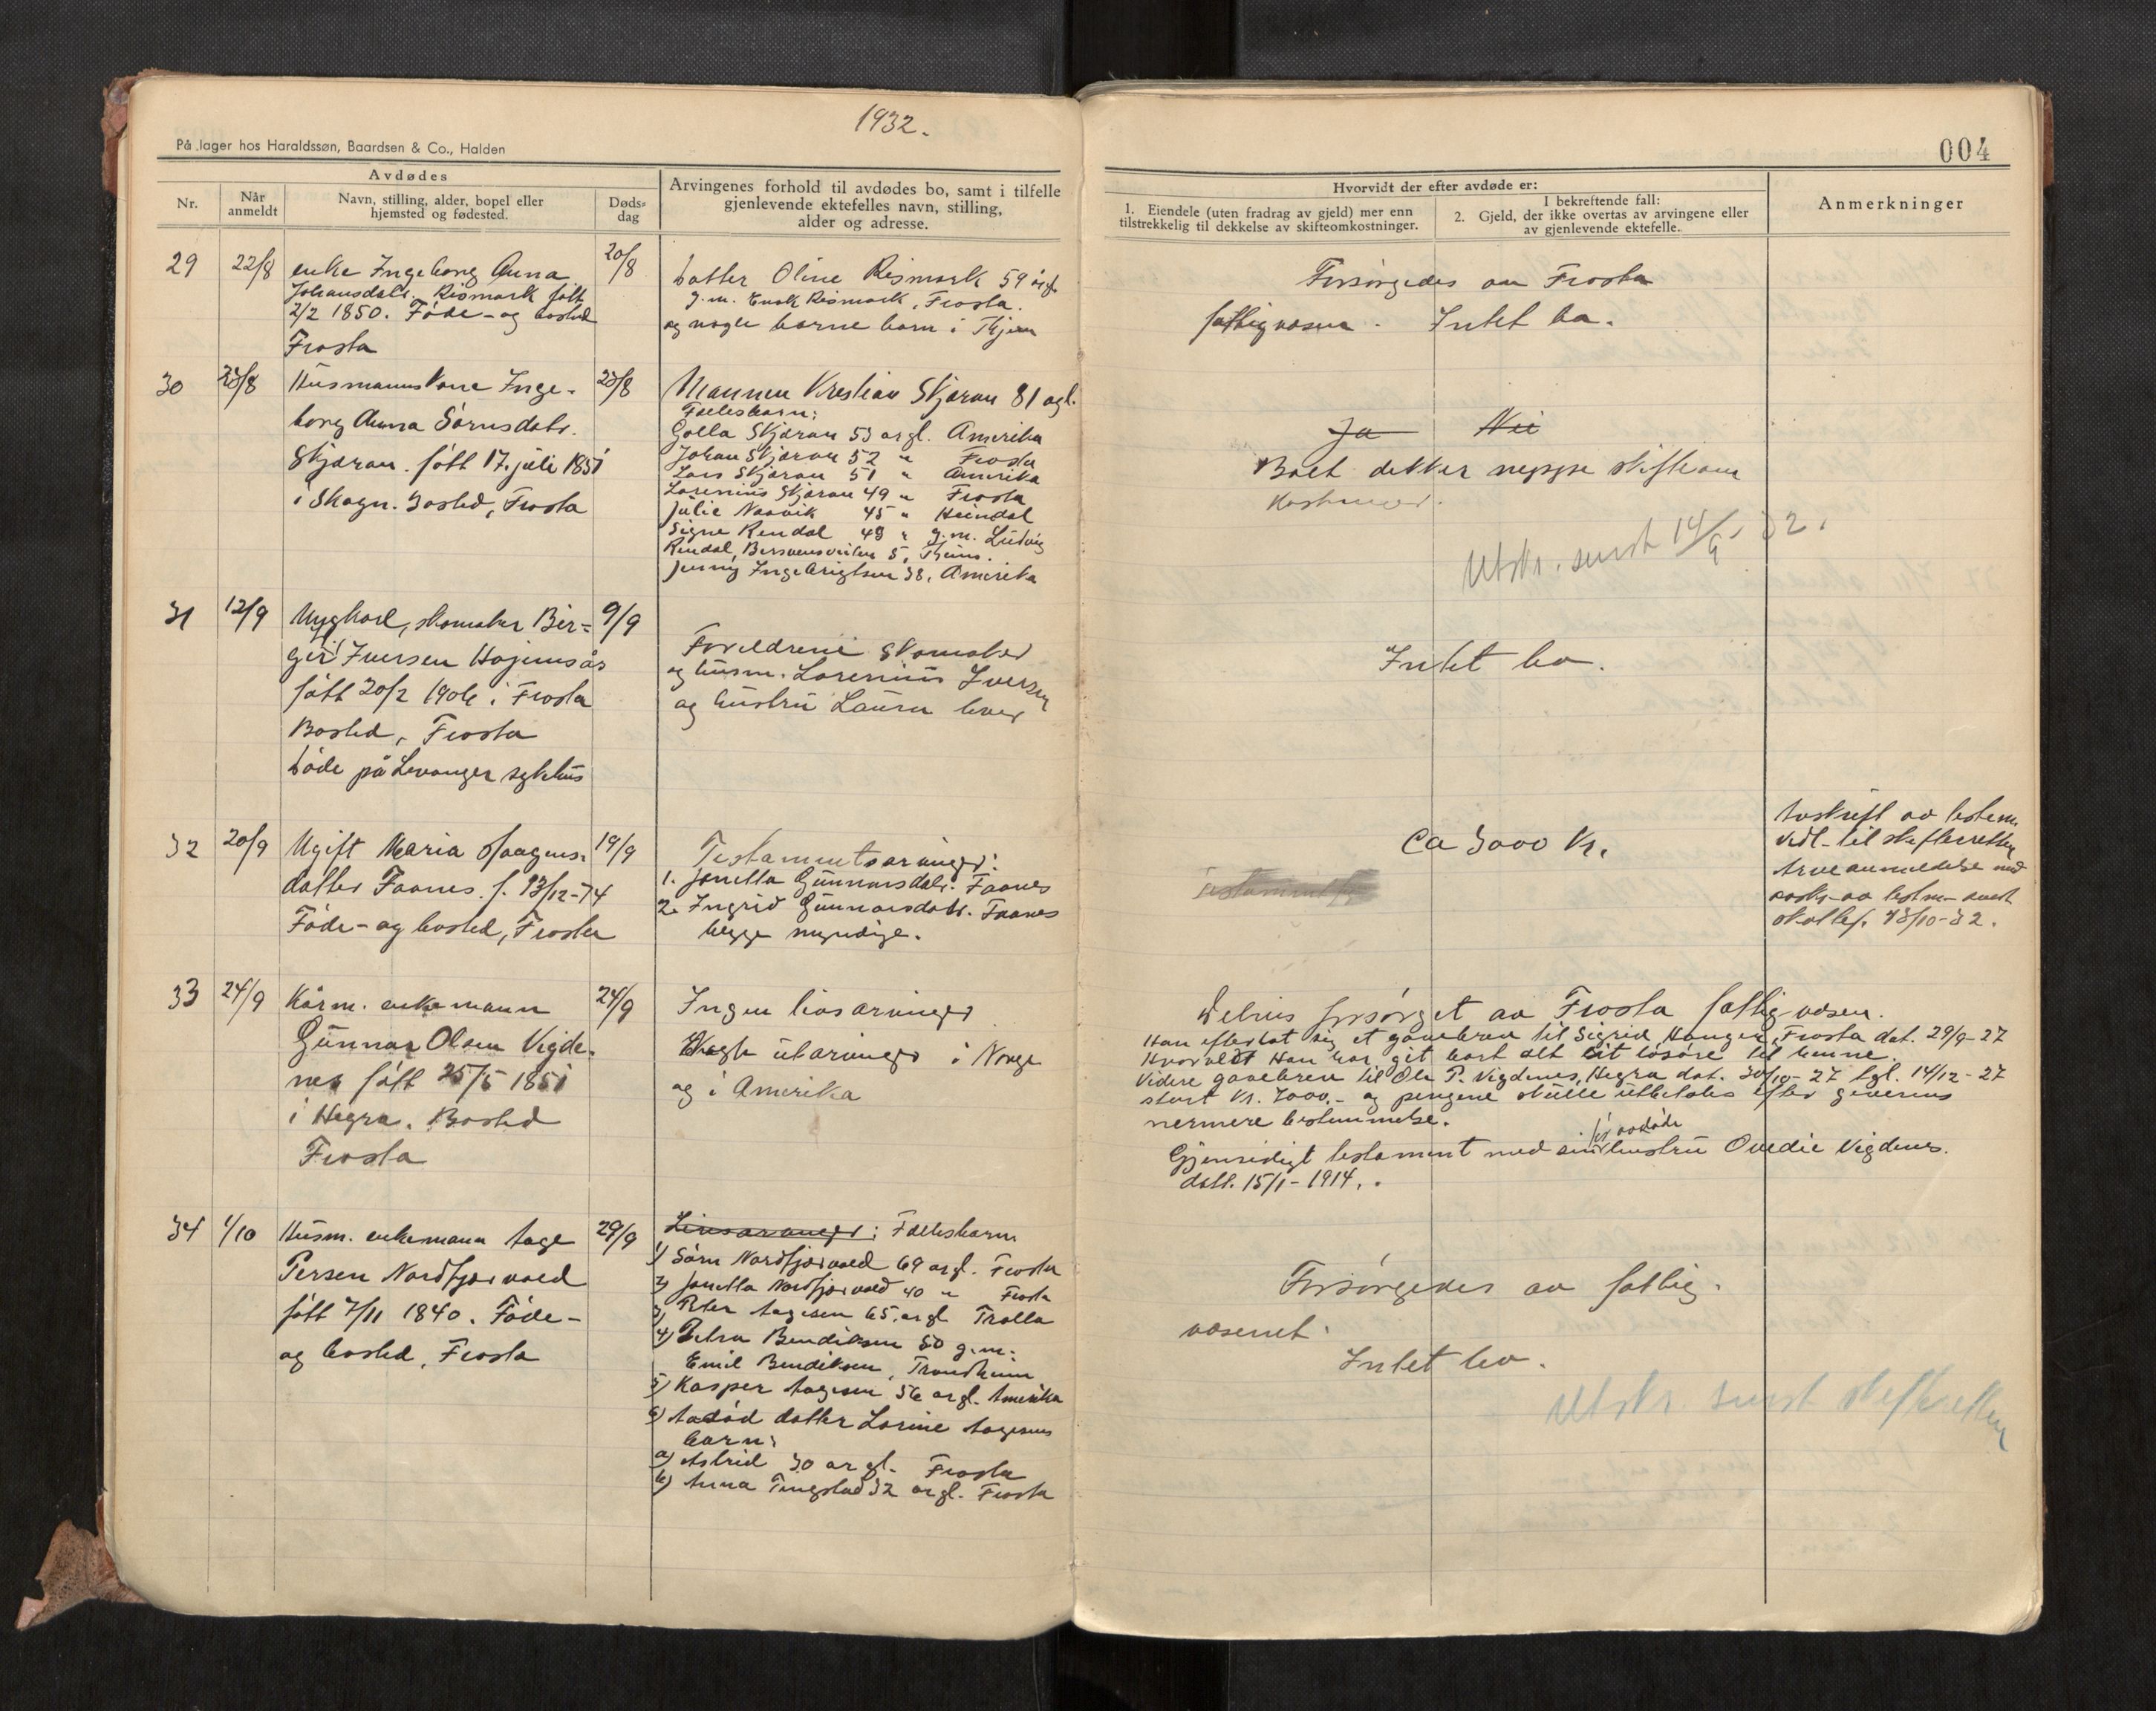 1932.
På lager hos Haraldssøn, Baardsen & Co., Halden
004
Avdødes
Nr.
Når anmeldt
Navn, stilling, alder, bopel eller hjemsted og fødested.
Døds-dag
Arvingenes forhold til avdødes bo, samt i tilfelle
gjenlevende ektefelles navn, stilling,
alder og adresse.
Hvorvidt der efter avdøde er:
1. Eiendele (uten fradrag av gjeld) mer enn
tilstrekkelig til dekkelse av skifteomkostninger.
I bekreftende fall:
2. Gjeld, der ikke overtas av arvingene eller
av gjenlevende ektefelle.
Anmerkninger
29 22/8 enke Ingeborg Anna 20/8
Johansdatr. Rismark født
2/2 1850. Føde- og bosted
Frosta
Datter Oline Rismark 59 år gl.
g.m. Enok Rismark, Frosta.
og nogle barne barn i
Forsørgedes av Frosta
fattigvesen. Intet bo.
30 23/8 Husmannskone Inge- 23/8
borg Anna Sørnsdatr.
Skjæran. født 17. juli 1851
i Skogn. Bosted, Frosta
Mannen Kristian Skjæran 81 a gl.
Fællesbarn:
Golla Skjæran 53 ar gl. Amerika
Johan Skjæran 52 " Frosta
Lars Skjæran 51 " Amerika
Lorenius Skjæran 49 " Frosta
Julie Naavik 45 " Heimdal
Signe Rendal 43 " g.m. Ludvig
Rendal, 5, Thjem.
Jenny Ingebrigtsen 38, Amerika
Ja Nei
Boet dekker neppe skifteom
kostninger.
Utskr. sendt 14/9 - 32.
31 12/9 Ungkarl, skomaker Bir= 9/9
ger Iversen Hojemsås
født 20/2 1906 i Frosta
Bosted, Frosta
Døde på Levanger sykehus
Foreldrene skomaker
og husm. Lorenius Iversen
og hustru Laura lever
Intet bo.
32 20/9 Ugift Maria Haagens- 19/9
datter Faanes f. 13/12-74
Føde- og bosted, Frosta
Testamentsarvinger:
1. Jonetta Gunnarsdatr. Faanes
2. Ingrid Gunnarsdatr. Faanes
begge myndige.
Ca 3000 Kr.
Testament
Avskrift av testam.
vedl. til skifteretten
Arveanmeldelse med
avskr. av testm. sendt
skattef. 13/10-32.
33 24/9 Kårm. enkemann 24/9
Gunnar Olsen Vigde-
nes født 25/5 1851
i Hegra. Bosted
Frosta
Ingen livsarvinger
Nogle utarvinger i Norge
og i Amerika
Delvis forsørget av Frosta fattigvesen.
Han efterlot sig et gavebrev til Sigrid Hanger, Frosta dat. 29/9-27
Hvorved Han har git bort alt sit løsøre til henne.
Videre gavebrev til Ole P. Vigdenes, Hegra dat. 30/10-27 tgl. 14/12-27
stort kr. 7000.- og pengene skulle utbetales efter giverens
nermere bestemmelse.
Gjensidigt testament med sin før avdøde hustru Ovedie Vigdenes.
datt. 15/1-1914.
34 1/10 Husm. enkemann Aage 29/9
Persen Nordfjærvoed
født 7/11 1840. Føde-
og bosted, Frosta
Livsarvinger: Fællesbarn
1) Sørn Nordfjærvoed 69 ar gl. Frosta
2) Jonetta Nordfjærvoed 40 " Frosta
3) Peter Aagesen 65. ar gl Trolla
4) Petra Bendiksen 50 g.m.
Emil Bendiksen, Trondheim
5) Kasper Aagesen 56 ar gl. Amerika
6) Avdød datter Lorine Aagesens
barn:
a) Astrid 30 ar gl. Frosta
b) Anna Tingstad 32 ar gl. Frosta
Forsørgedes av fattig-
vesenet.
Intet bo.
Utskr. sendt skifteretten